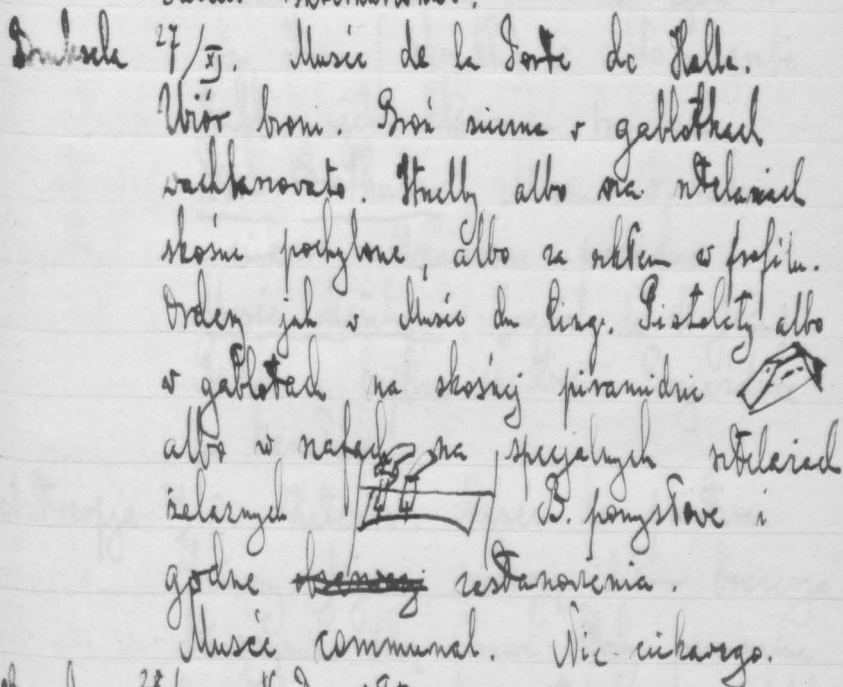 Bruksela 27/XI. Musée de la Porte de Halle.
Zbiór broni. Broń sieczna w gablotkach
wachlarzowato. Strzelby albo na stelażach
skośnie pochylone, albo za szkłem w profilu.
Ordery jak w Musée du Cinq. Pistolety albo
w gablotach na skośnej piramidzie
albo w szafach na specjalnych stelażach
żelaznych B. pomysłowe i
godne zastanowienia.
Musée communal. Nic ciekawego.
28/